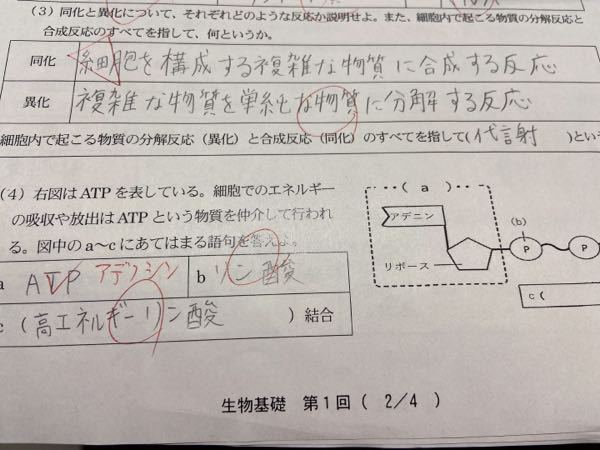 (3) 同化と異化について、それぞれどのような反応か説明せよ。また、細胞内で起こる物質の分解反応と
合成反応のすべてを指して、何というか。
同化 細胞を構成する複雑な物質に合成する反応
異化 複雑な物質を単純な物質に分解する反応
細胞内で起こる物質の分解反応（異化）と合成反応（同化）のすべてを指して(代謝)とい
(4) 右図はATPを表している。細胞でのエネルギー
の吸収や放出はATPという物質を仲介して行われ
る。図中のa～cにあてはまる語句を答えよ。
a ATP アデノシン b リン酸
c (高エネルギーリン酸 )結合
( a )
アデニン
リボース
(b)
P
P
c (
生物基礎 第1回 ( 2/4 )